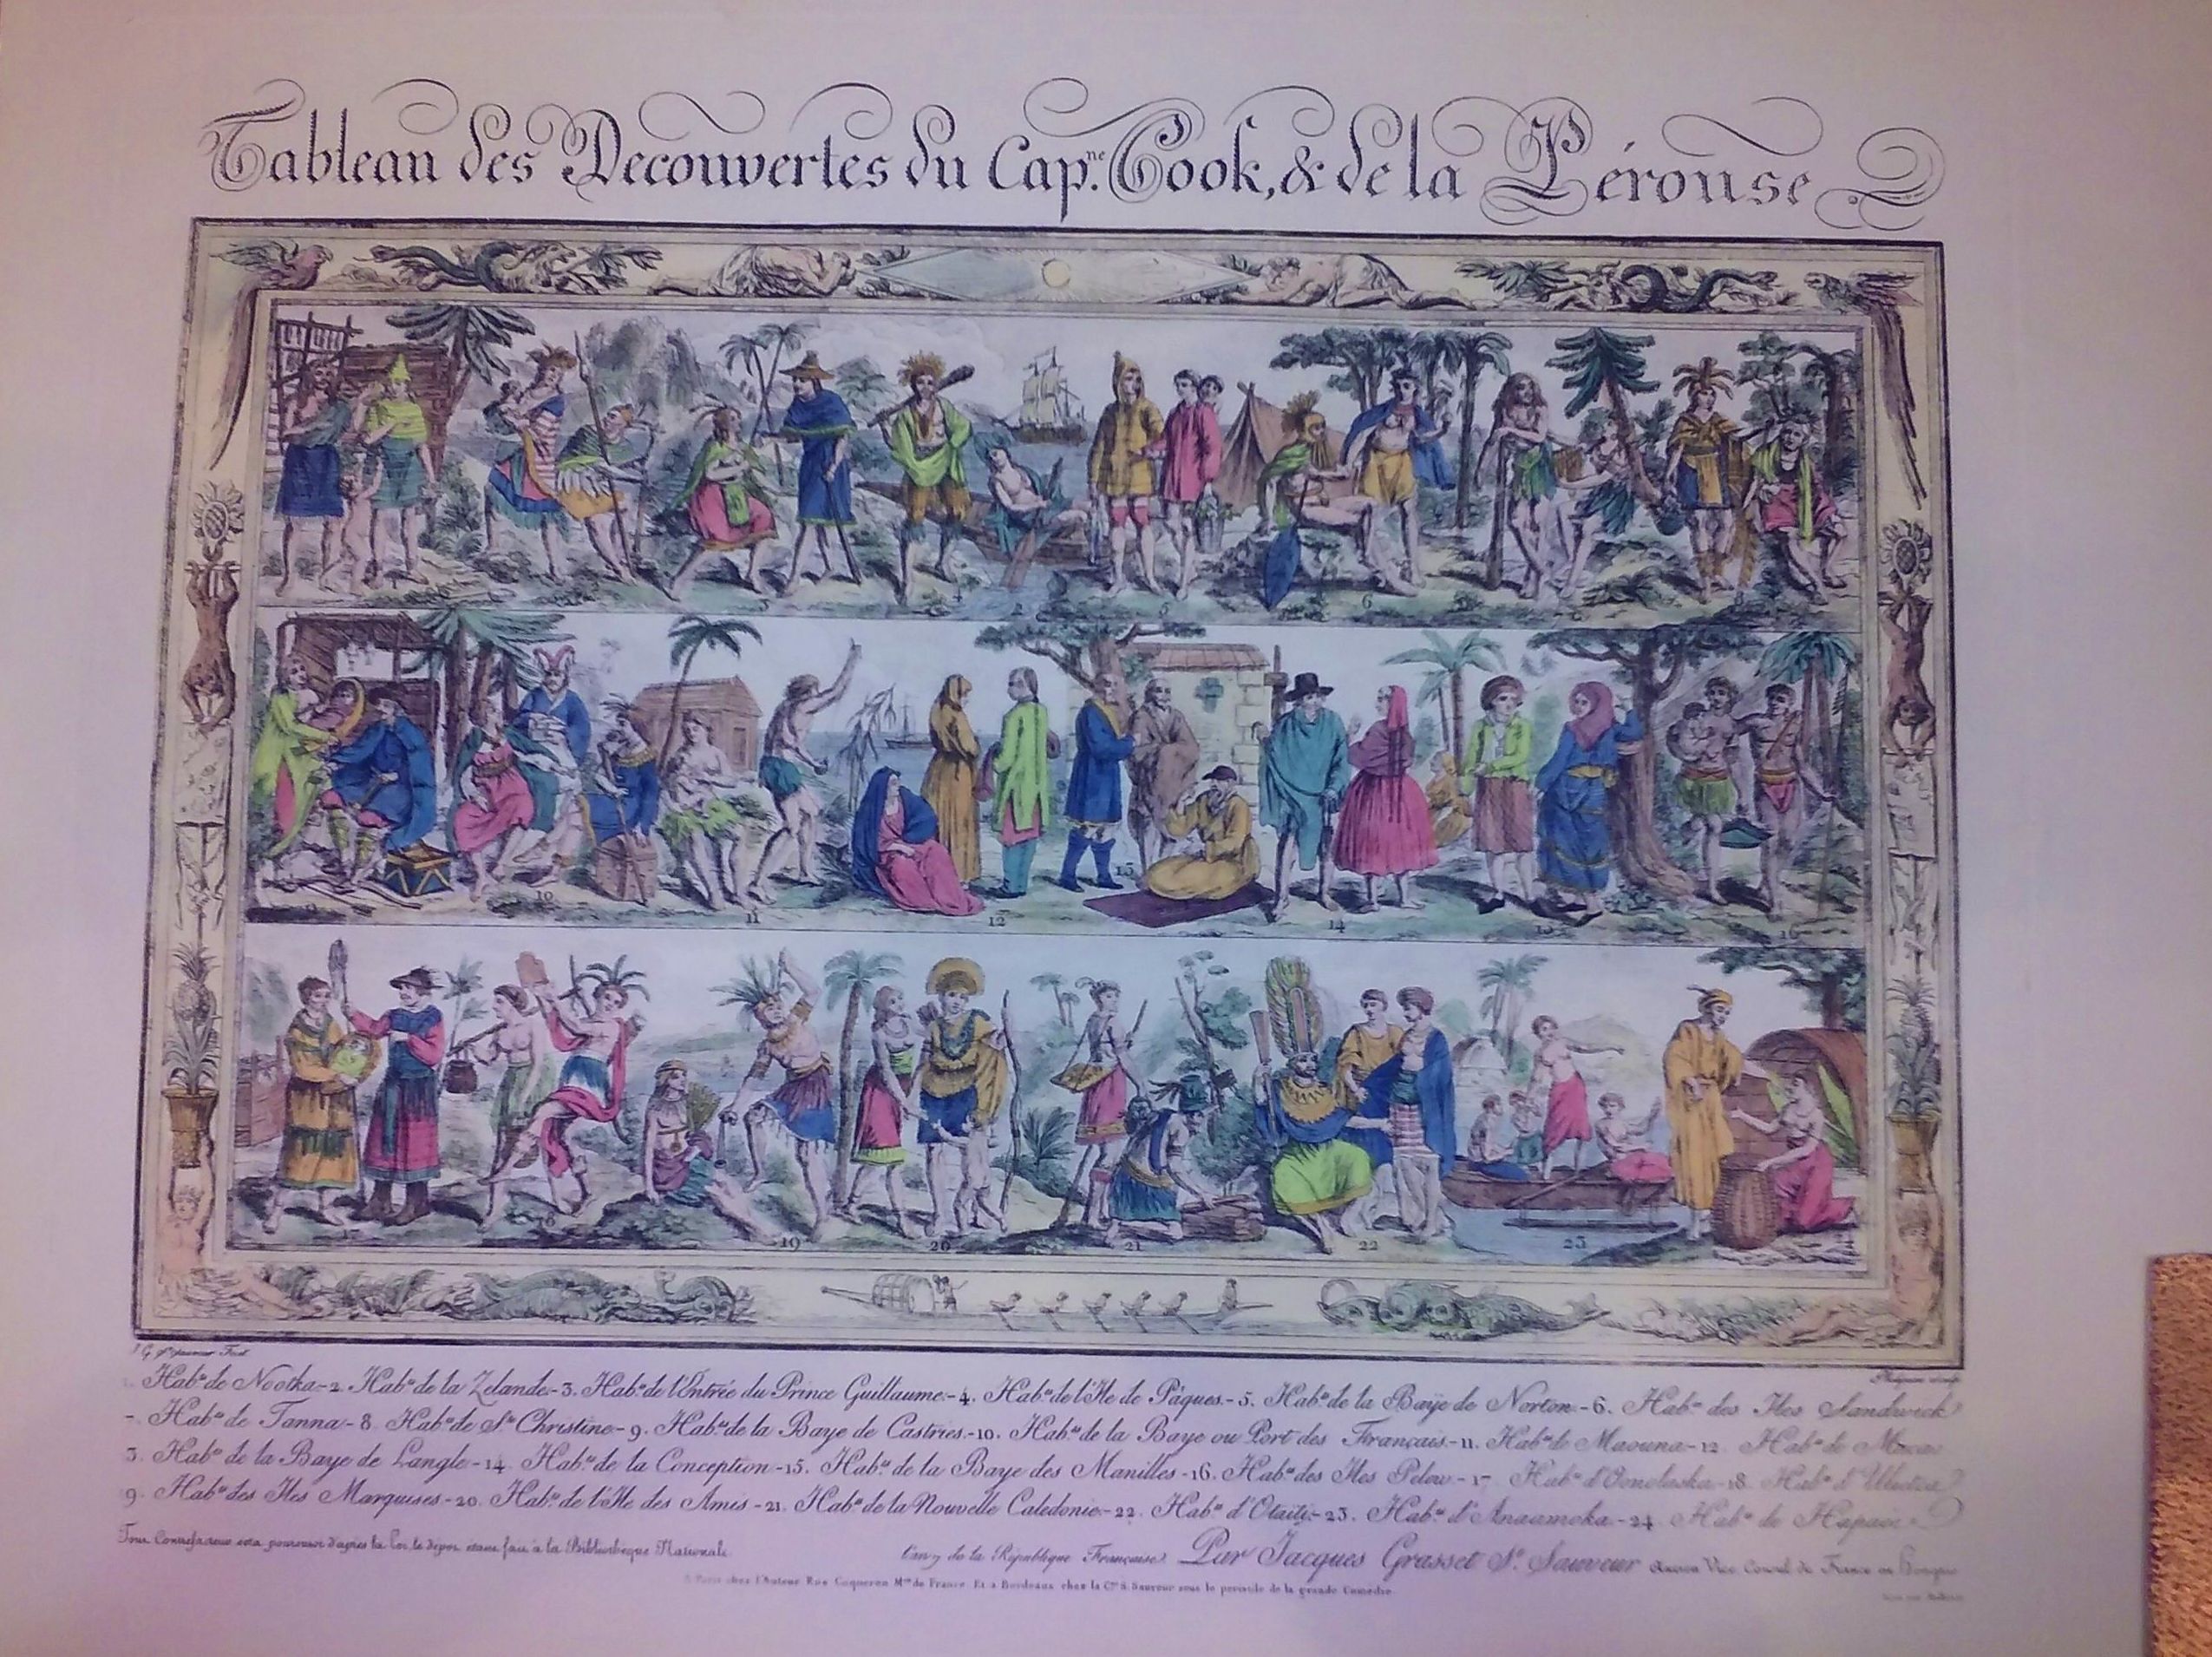 Tableau des Decouvertes du Cap.ne Cook, & de la Pérouse
3
4
5
6
10
11
12
13
14
15
16
19
20
21
22
23
J G St Sauveur Fecit
1. Hab.ns de Nootka-2. Hab.ns de la Zelande-3. Hab.ns de l'Entrée du Prince Guillaume-4. Hab.ns de l'Ile de Pâques-5. Hab.ns de la Baye de Norton-6. Hab.ns des Iles Sandwick
7. Hab.ns de Tanna-8. Hab.ns de Ste Christine-9. Hab.ns de la Baye de Castries-10. Hab.ns de la Baye ou Port des Français-11. Hab.ns de Maouna-12. Hab.ns de Macao
13. Hab.ns de la Baye de Langle-14. Hab.ns de la Conception-15. Hab.ns de la Baye des Manilles-16. Hab.ns des Iles Pelew-17. Hab.ns d'Oonolaska-18. Hab.ns d'Ulietea
19. Hab.ns des Iles Marquises-20. Hab.ns de l'Ile des Amis-21. Hab.ns de la Nouvelle Caledonie-22. Hab.ns d'Otaiti-23. Hab.ns d'Anaamoka-24. Hab.ns de Hapaee
Tout Contrefacteur sera poursuivi d'après la Loi, le dépot étant fait à la Bibliotheque Nationale.
l'an 7 de la République Française. Par Jacques Grasset St. Sauveur Ancien Vice Consul de France en Hongrie
A Paris chez l'Auteur Rue Coqueron Mson de France. Et a Bordeaux chez la Cne S. Sauveur sous le peristile de la grande Comedie.